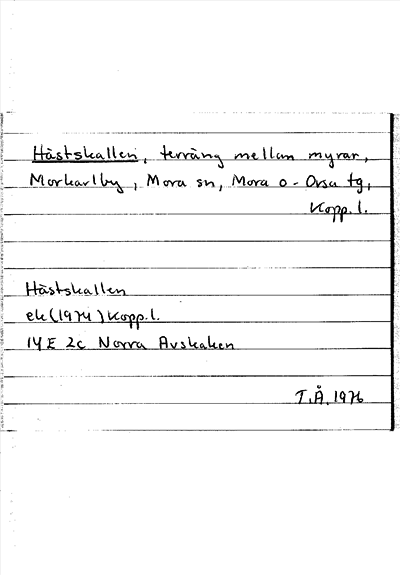 Hästskallen, terräng mellan myrar,
Morkarlby, Mora sn, Mora o. Orsa tg,
Kopp. l.
Hästskallen
ek (1974) Kopp. l.
14 E 2c Norra Avskaken
T.Å. 1976